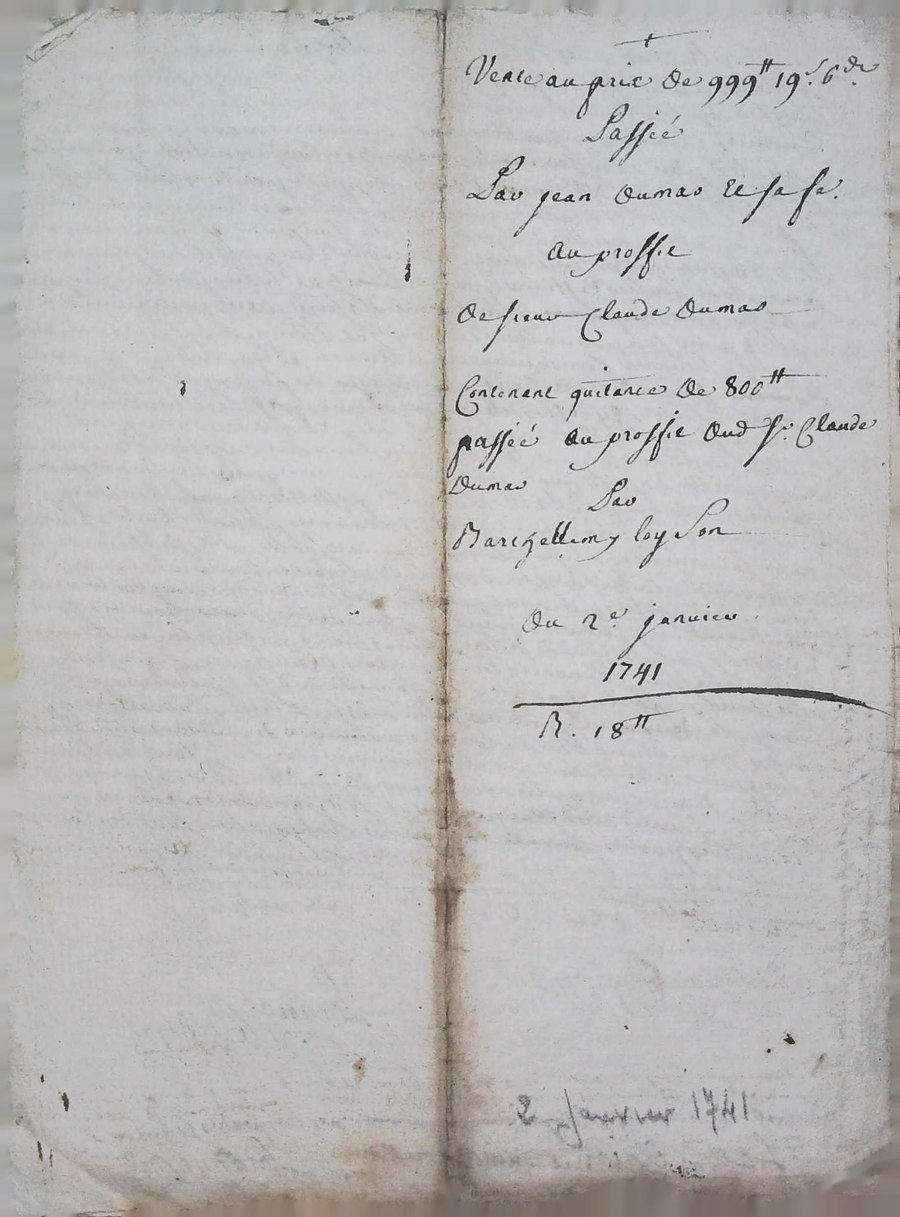 +
Vente au prix de 999tt 19s 6dr
Passéé
Par jean dumas Et sa fe.
Au proffit
de sieur Claude dumas
Contenant quitance de 800tt
passéé au proffit dud sr. Claude
dumas
Par
Barthellemy loyson
du 2e janvier
1741
R. 18tt
2 janvier 1741